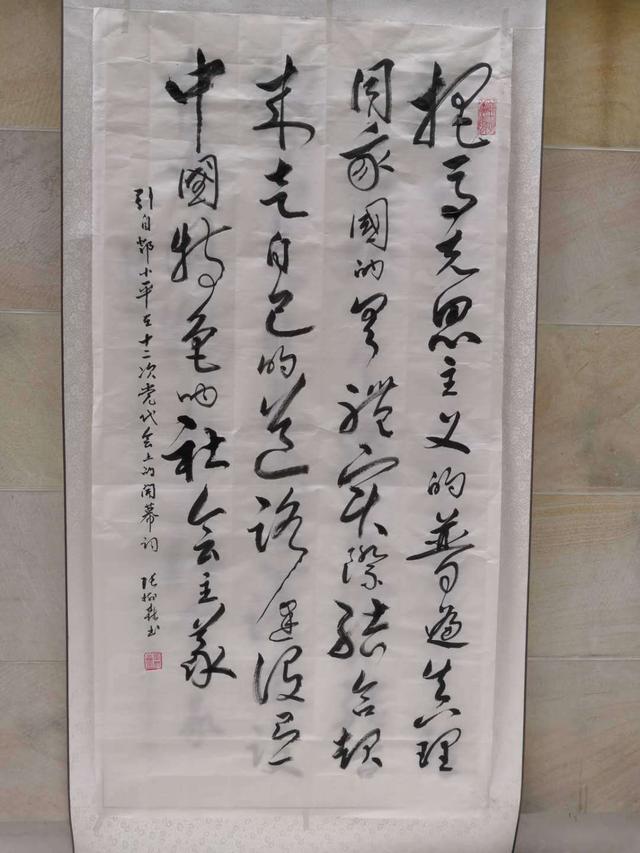 把马克思主义的普遍真理
同我國的具體实際结合起
来走自己的道路建设有
中國特色的社会主義
引自邓小平在十二次党代会上的開幕词